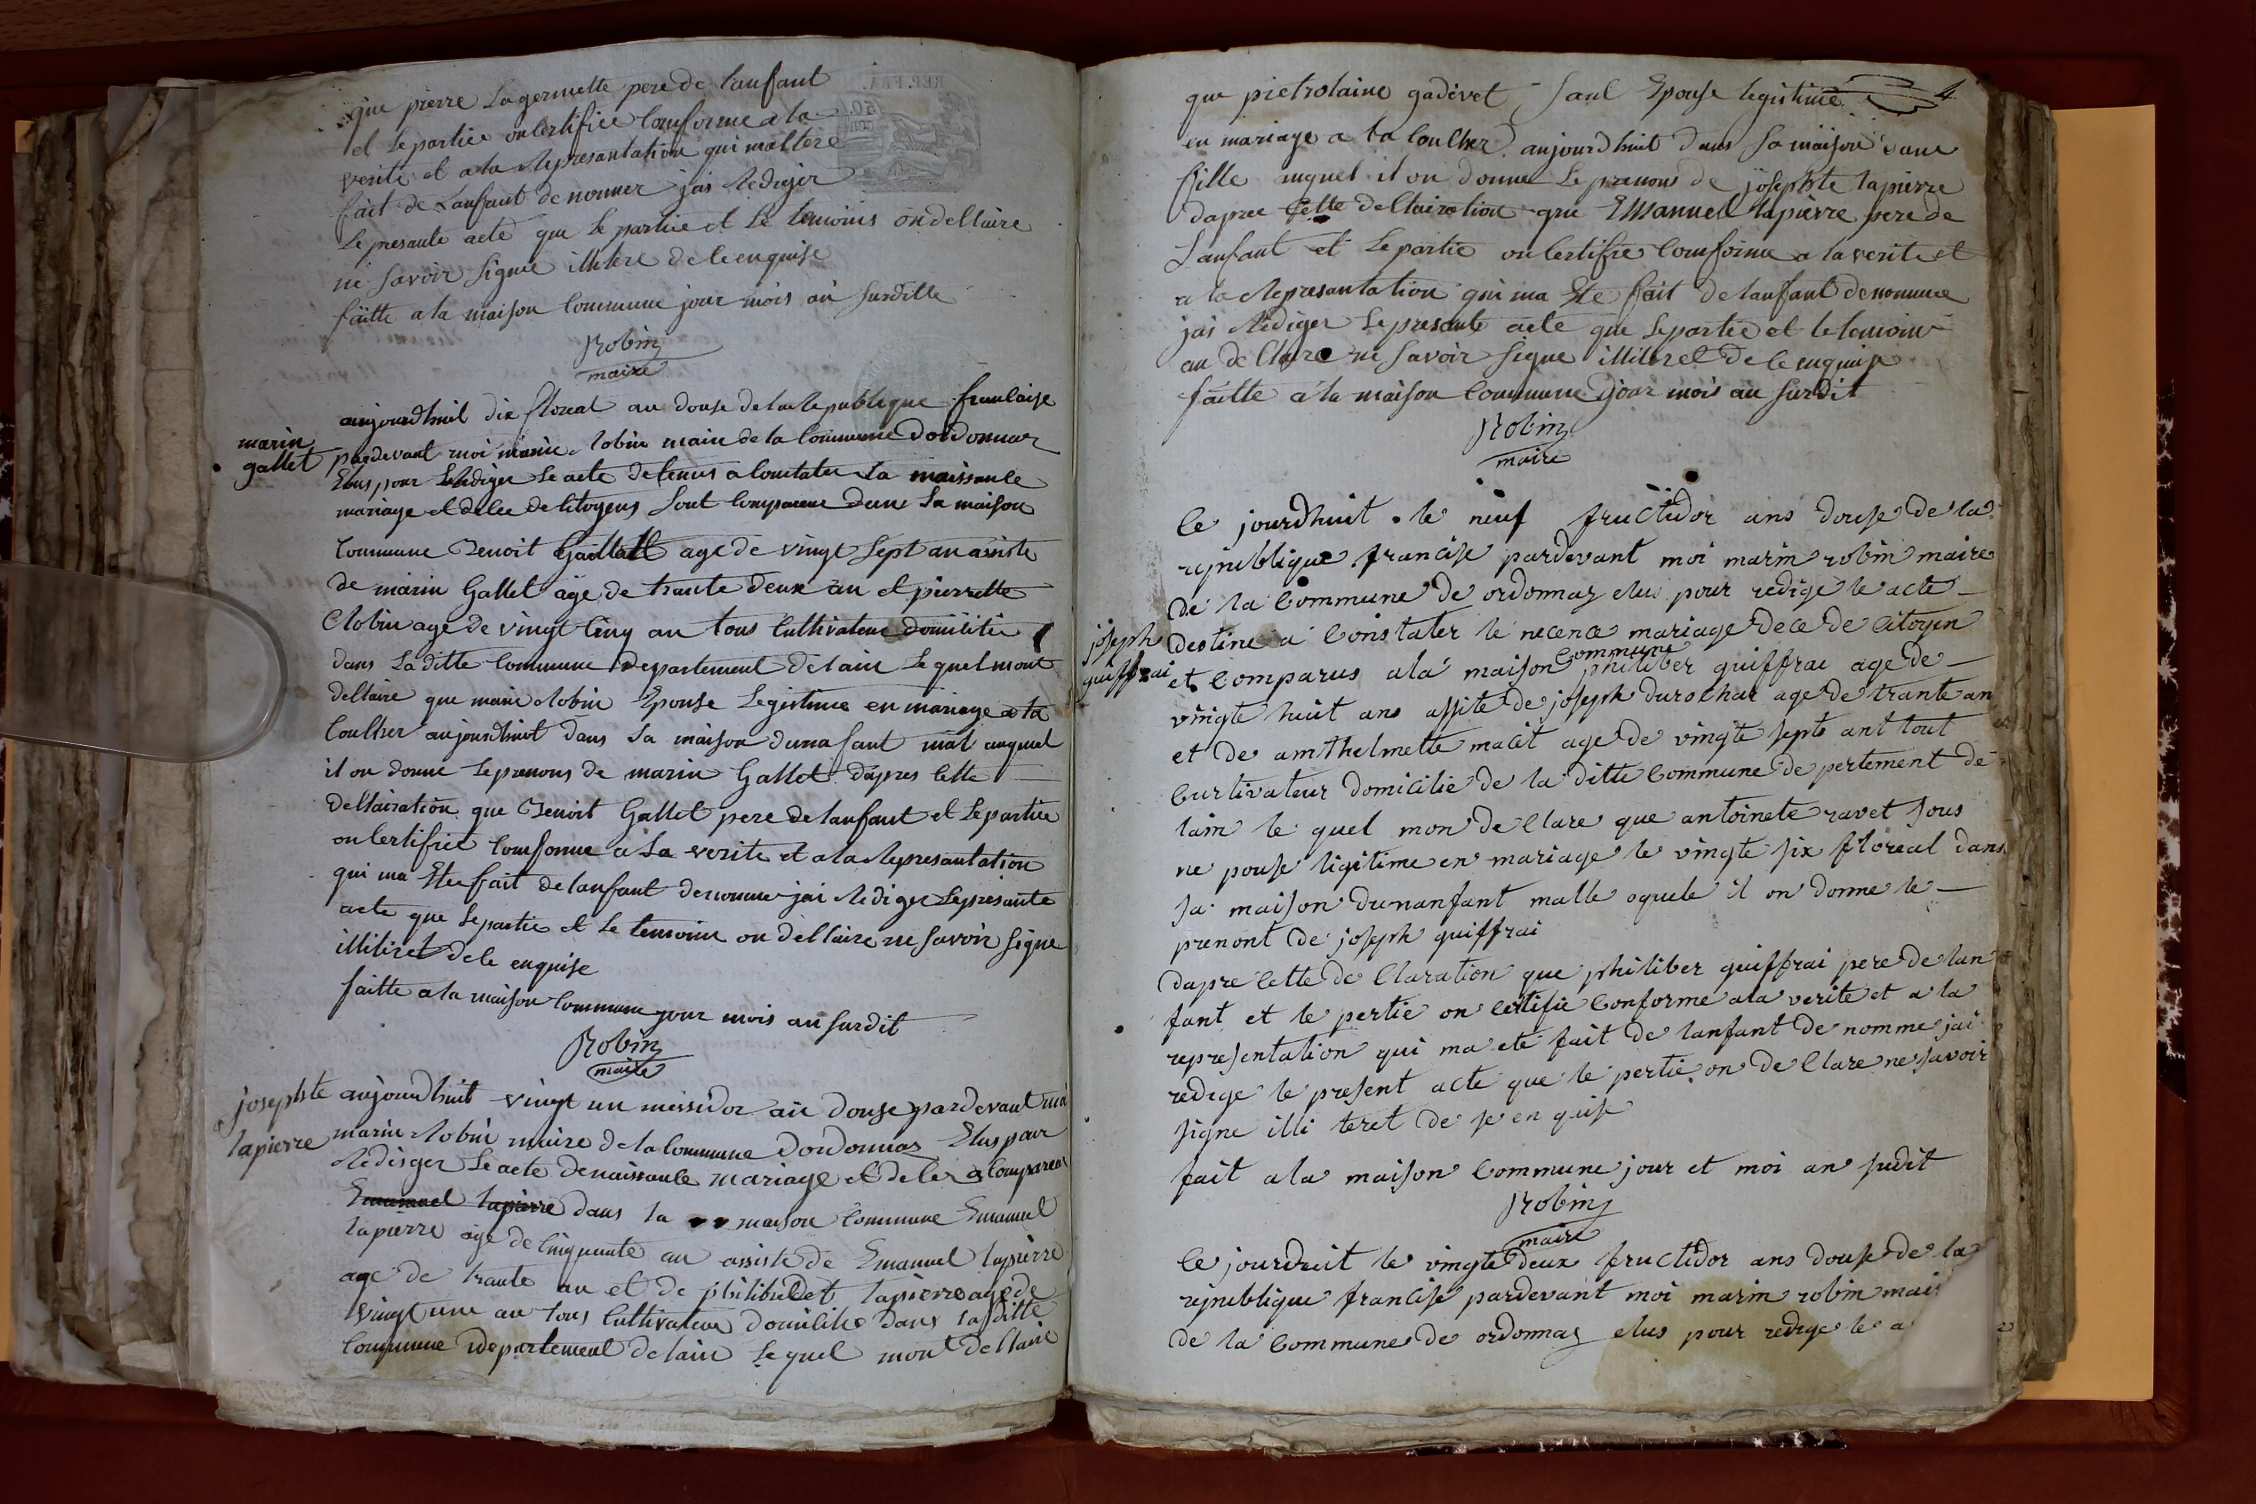 que pierre Lagermette pere de lanfant
et le partiee on Certifiee Conforme a la
verite et a la Represantation qui maltere
fait de Lanfant de nonmer jais Rediger
Le presante acte que le partiee et Le temoins on dellaire
ne Savoir Signe illitere de le enquise
faitte a la maison Commune jour mois an Surditte
Robin
maire
marin
gallet
aujourdhuit dix floreal an douse de la Republique franlaise
pardevant moi marin Robin maire de la Commune Dordonnaz
Elus pour Rediger Le acte destenus a Constater La naissanle
mariage et delee de Citoyens Sont Comparene Dans La maison
Commune Benoit Gaillatt age de vingt Sept an assiste
de marin Gallet age de trante deux an et pierrette
Robin age de vingt Cinq an tous Cultivateur domilitie
dans La ditte Commune Departement de lain Le quel mont
dellaire que marie Robin Epouse Legistime en mariage a ta
Coulher aujourdhuit dans Sa maison dunafant mal auquel
il on donne Le prenons de marin Gallet dapres Cette
dellairation que Benoit Gallet pere de lanfant et Le partiee
on Certifiee Conforme a La verite et a la Represantation
qui ma Etee fait de lanfant denomme jai Rediger Le presante
acte que Le partiee et Le temoins on dellaire ne Savoir Signe
illiteret de le enquise
faitte a la maison Commune jour mois an Surdit
Robin
maire
josephte
lapierre
aujourdhuit vingt un messidor an douse pardevant moi
marin Robin maire de la Commune Dordonnaz Elus pour
Redisger Le acte de naissanle mariage et deles a Compareus
Emanuel lapierre dans la maison Commune Emanuel
lapierre age de Cinquante an assiste de Emanuel lapierre
age de trante an et de philibert lapierre age de
vingt une an tous Cultivateur domilitie dans La ditte
Commune Departement de lain Le quel mont dellaire
4
que pietrolaine gadevet Saul Epouse legistime
en mariage a ta Coulher aujourdhuit dans Sa maison dune
fille auquel il on donne Le prenons de josephte lapierre
dapree Cette dellairetion que EManuel lapierre pere de
Lanfant et Le partie on Certifie Conforme a la verite et
a la Represantation qui ma Ete fait de lanfant denomme
jais Rediger Le presante acte que Le partee et le temoins
an dellare ne Savoir Signe illiteret de le enquise
faitte a la maison Commune jour mois an Surdit
Robin
maire
joseph
guiffrai
Ce jourdhuit le neuf fructidor ans douse de la
republique francise pardevant moi marin robin maire
de la Commune de ordonnaz elus pour redige le acte
destine a Constater le necence mariage dece de Citoyen
et Comparus a la maison Commune philiber guiffrai age de
vingte huit ans assite de joseph durochat age de trante an
et de amthelmette malit age de vingte septe ant tout
Curtivateur domicilie de la ditte Commune de pertement de
lain le quel mon de Clare que antoinete ravet sous
ne pouse ligitime en mariage le vingte six floreal dans
sa maison dunanfant malle oquele il on donne le
prenont de joseph guiffrai
dapre Cette de Claration que philiber guiffrai pere de lan
fant et le pertie on Certifie Conforme a la verite et a la
representation qui ma ete fait de lanfant de nomme jai
redige le present acte que le pertie on de Clare ne savoir
signe illi teret de se en quise
fait a la maison Commune jour et moi an sudit
Robin
maire
Ce jourdhuit le vingte deux fructidor ans douse de la
republique francise pardevant moi marin robin mai
de la Commune de ordonnaz elus pour redige le a